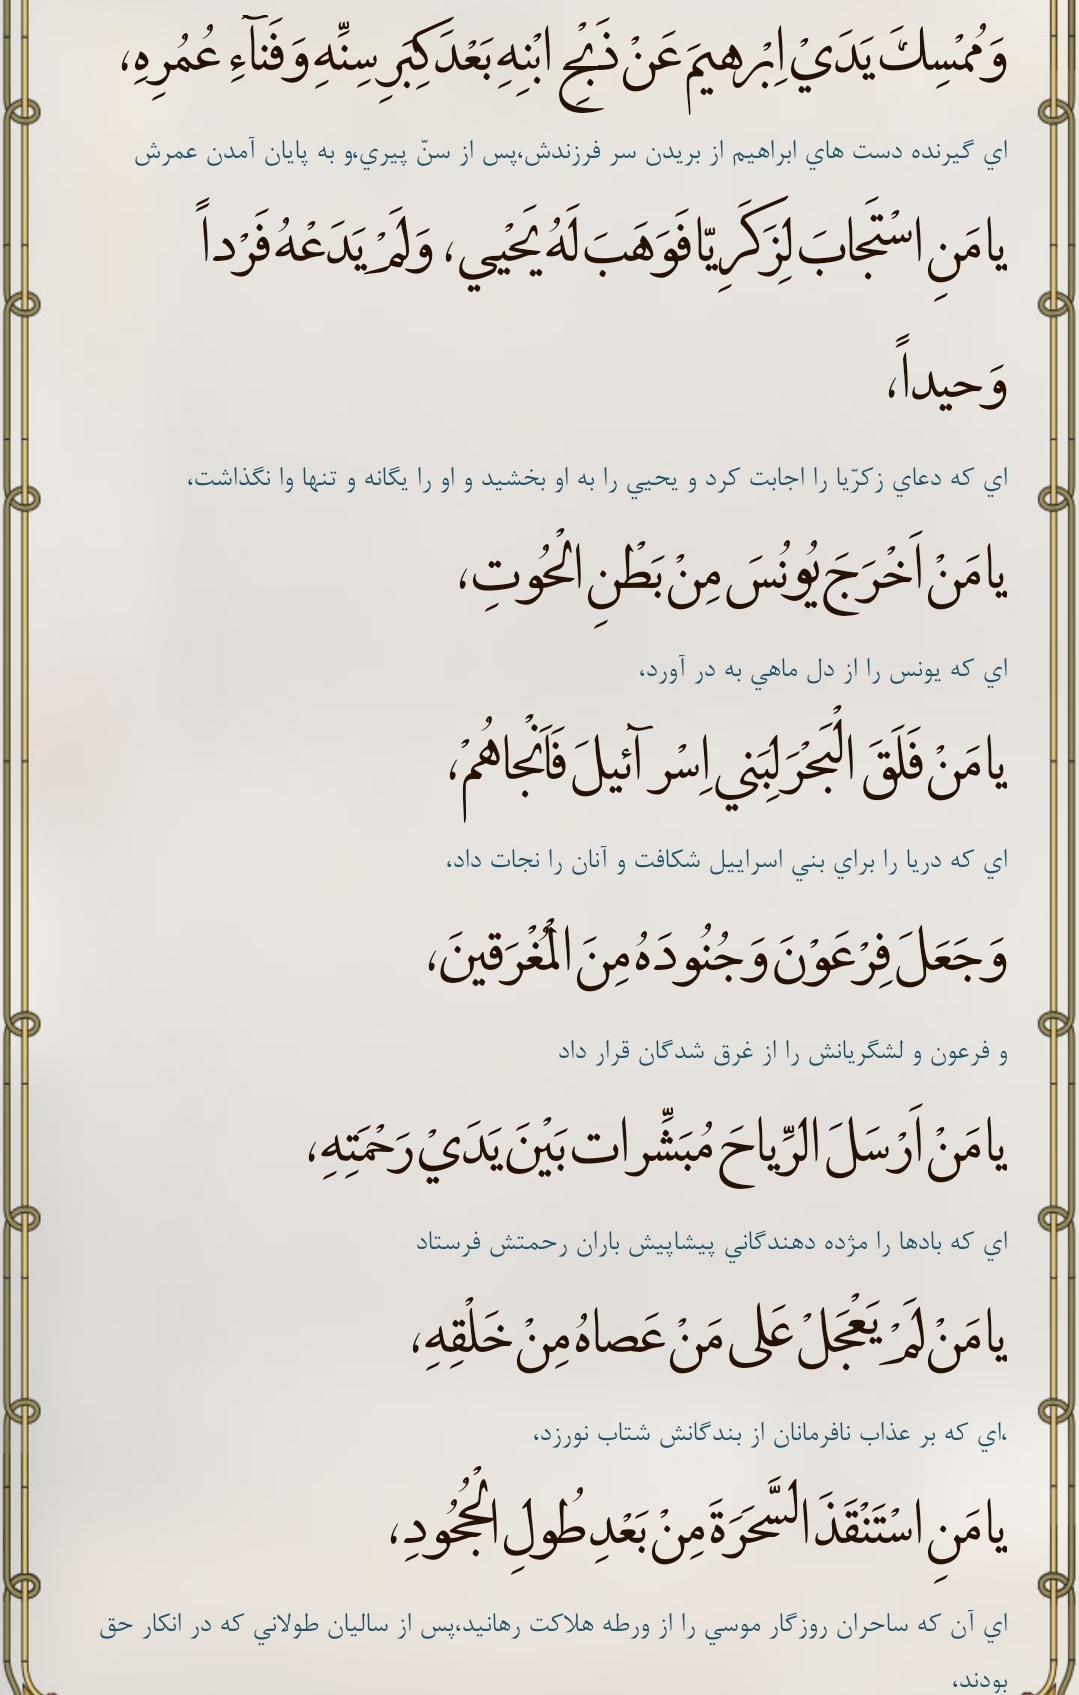 وَمُمْسِكَ يَدَيْ اِبْرهيمَ عَنْ ذَبْحِ ابْنِهِ بَعْدَ كِبَرِ سِنِّهِ وَفَنآءِ عُمُرِهِ،
اي گيرنده دست هاي ابراهيم از بريدن سر فرزندش،پس از سنّ پيري،و به پايان آمدن عمرش
يا مَنِ اسْتَجابَ لِزَكَرِيّا فَوَهَبَ لَهُ يَحْيي، وَلَمْ يَدَعْهُ فَرْداً
وَحيداً،
اي كه دعاي زكرّيا را اجابت كرد و يحيي را به او بخشيد و او را يگانه و تنها وا نگذاشت،
يا مَنْ اَخْرَجَ يُونُسَ مِنْ بَطْنِ الْحُوتِ،
اي كه يونس را از دل ماهي به در آورد،
يا مَنْ فَلَقَ الْبَحْرَ لِبَني اِسْرآئيلَ فَاَنْجاهُمْ،
اي كه دريا را براي بني اسراييل شكافت و آنان را نجات داد،
وَجَعَلَ فِرْعَوْنَ وَجُنُودَهُ مِنَ الْمُغْرَقينَ،
و فرعون و لشگريانش را از غرق شدگان قرار داد
يا مَنْ اَرْسَلَ الرِّياحَ مُبَشِّرات بَيْنَ يَدَيْ رَحْمَتِهِ،
اي كه بادها را مژده دهندگاني پيشاپيش باران رحمتش فرستاد
يا مَنْ لَمْ يَعْجَلْ عَلى مَنْ عَصاهُ مِنْ خَلْقِهِ،
،اي كه بر عذاب نافرمانان از بندگانش شتاب نورزد،
يا مَنِ اسْتَنْقَذَ السَّحَرَةَ مِنْ بَعْدِ طُولِ الْجُحُودِ،
اي آن كه ساحران روزگار موسي را از ورطه هلاكت رهانيد،پس از ساليان طولاني كه در انكار حق
بودند،